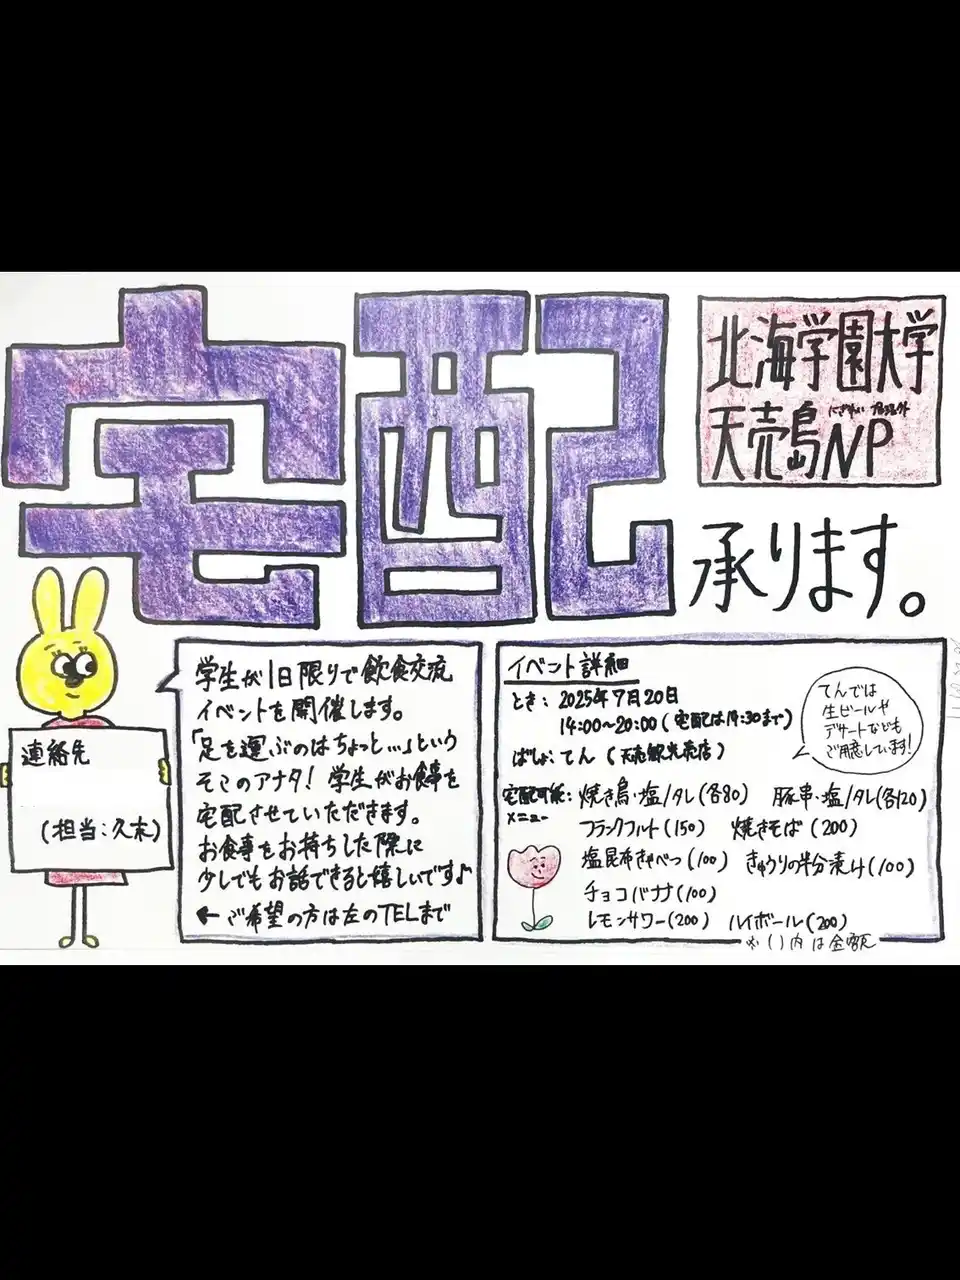 宅配
北海学園大学
天売島NP
にぎわい プロジェクト
承ります。
連絡先
(担当:久末)
学生が1日限りで飲食交流
イベントを開催します。
「足を運ぶのはちょっと…」という
そこのアナタ! 学生がお食事を
宅配させていただきます。
お食事をお持ちした際に
少しでもお話できると嬉しいです♪
← ご希望の方は左のTELまで
イベント詳細
とき: 2025年7月20日
14:00~20:00(宅配は19:30まで)
ばしょ: てん(天売観光売店)
てんでは
生ビールや
デザートなども
ご用意しています!
宅配可能メニュー: 焼き鳥・塩/タレ(各80) 豚串・塩/タレ(各120)
フランクフルト(150) 焼きそば(200)
塩昆布きゃべつ(100) きゅうりの半分漬け(100)
チョコバナナ(100)
レモンサワー(200) ハイボール(200)
※( )内は金額